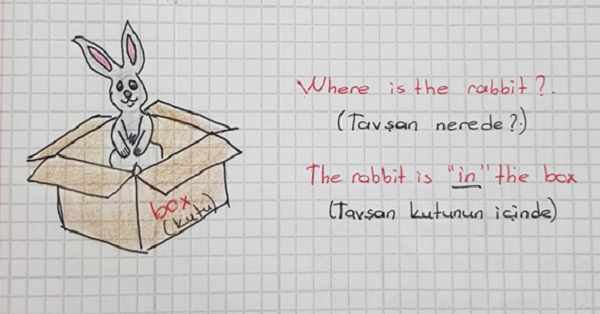 Where is the rabbit?.
(Tavşan nerede?)
The rabbit is "in" the box
(Tavşan kutunun içinde)
box
(kutu)